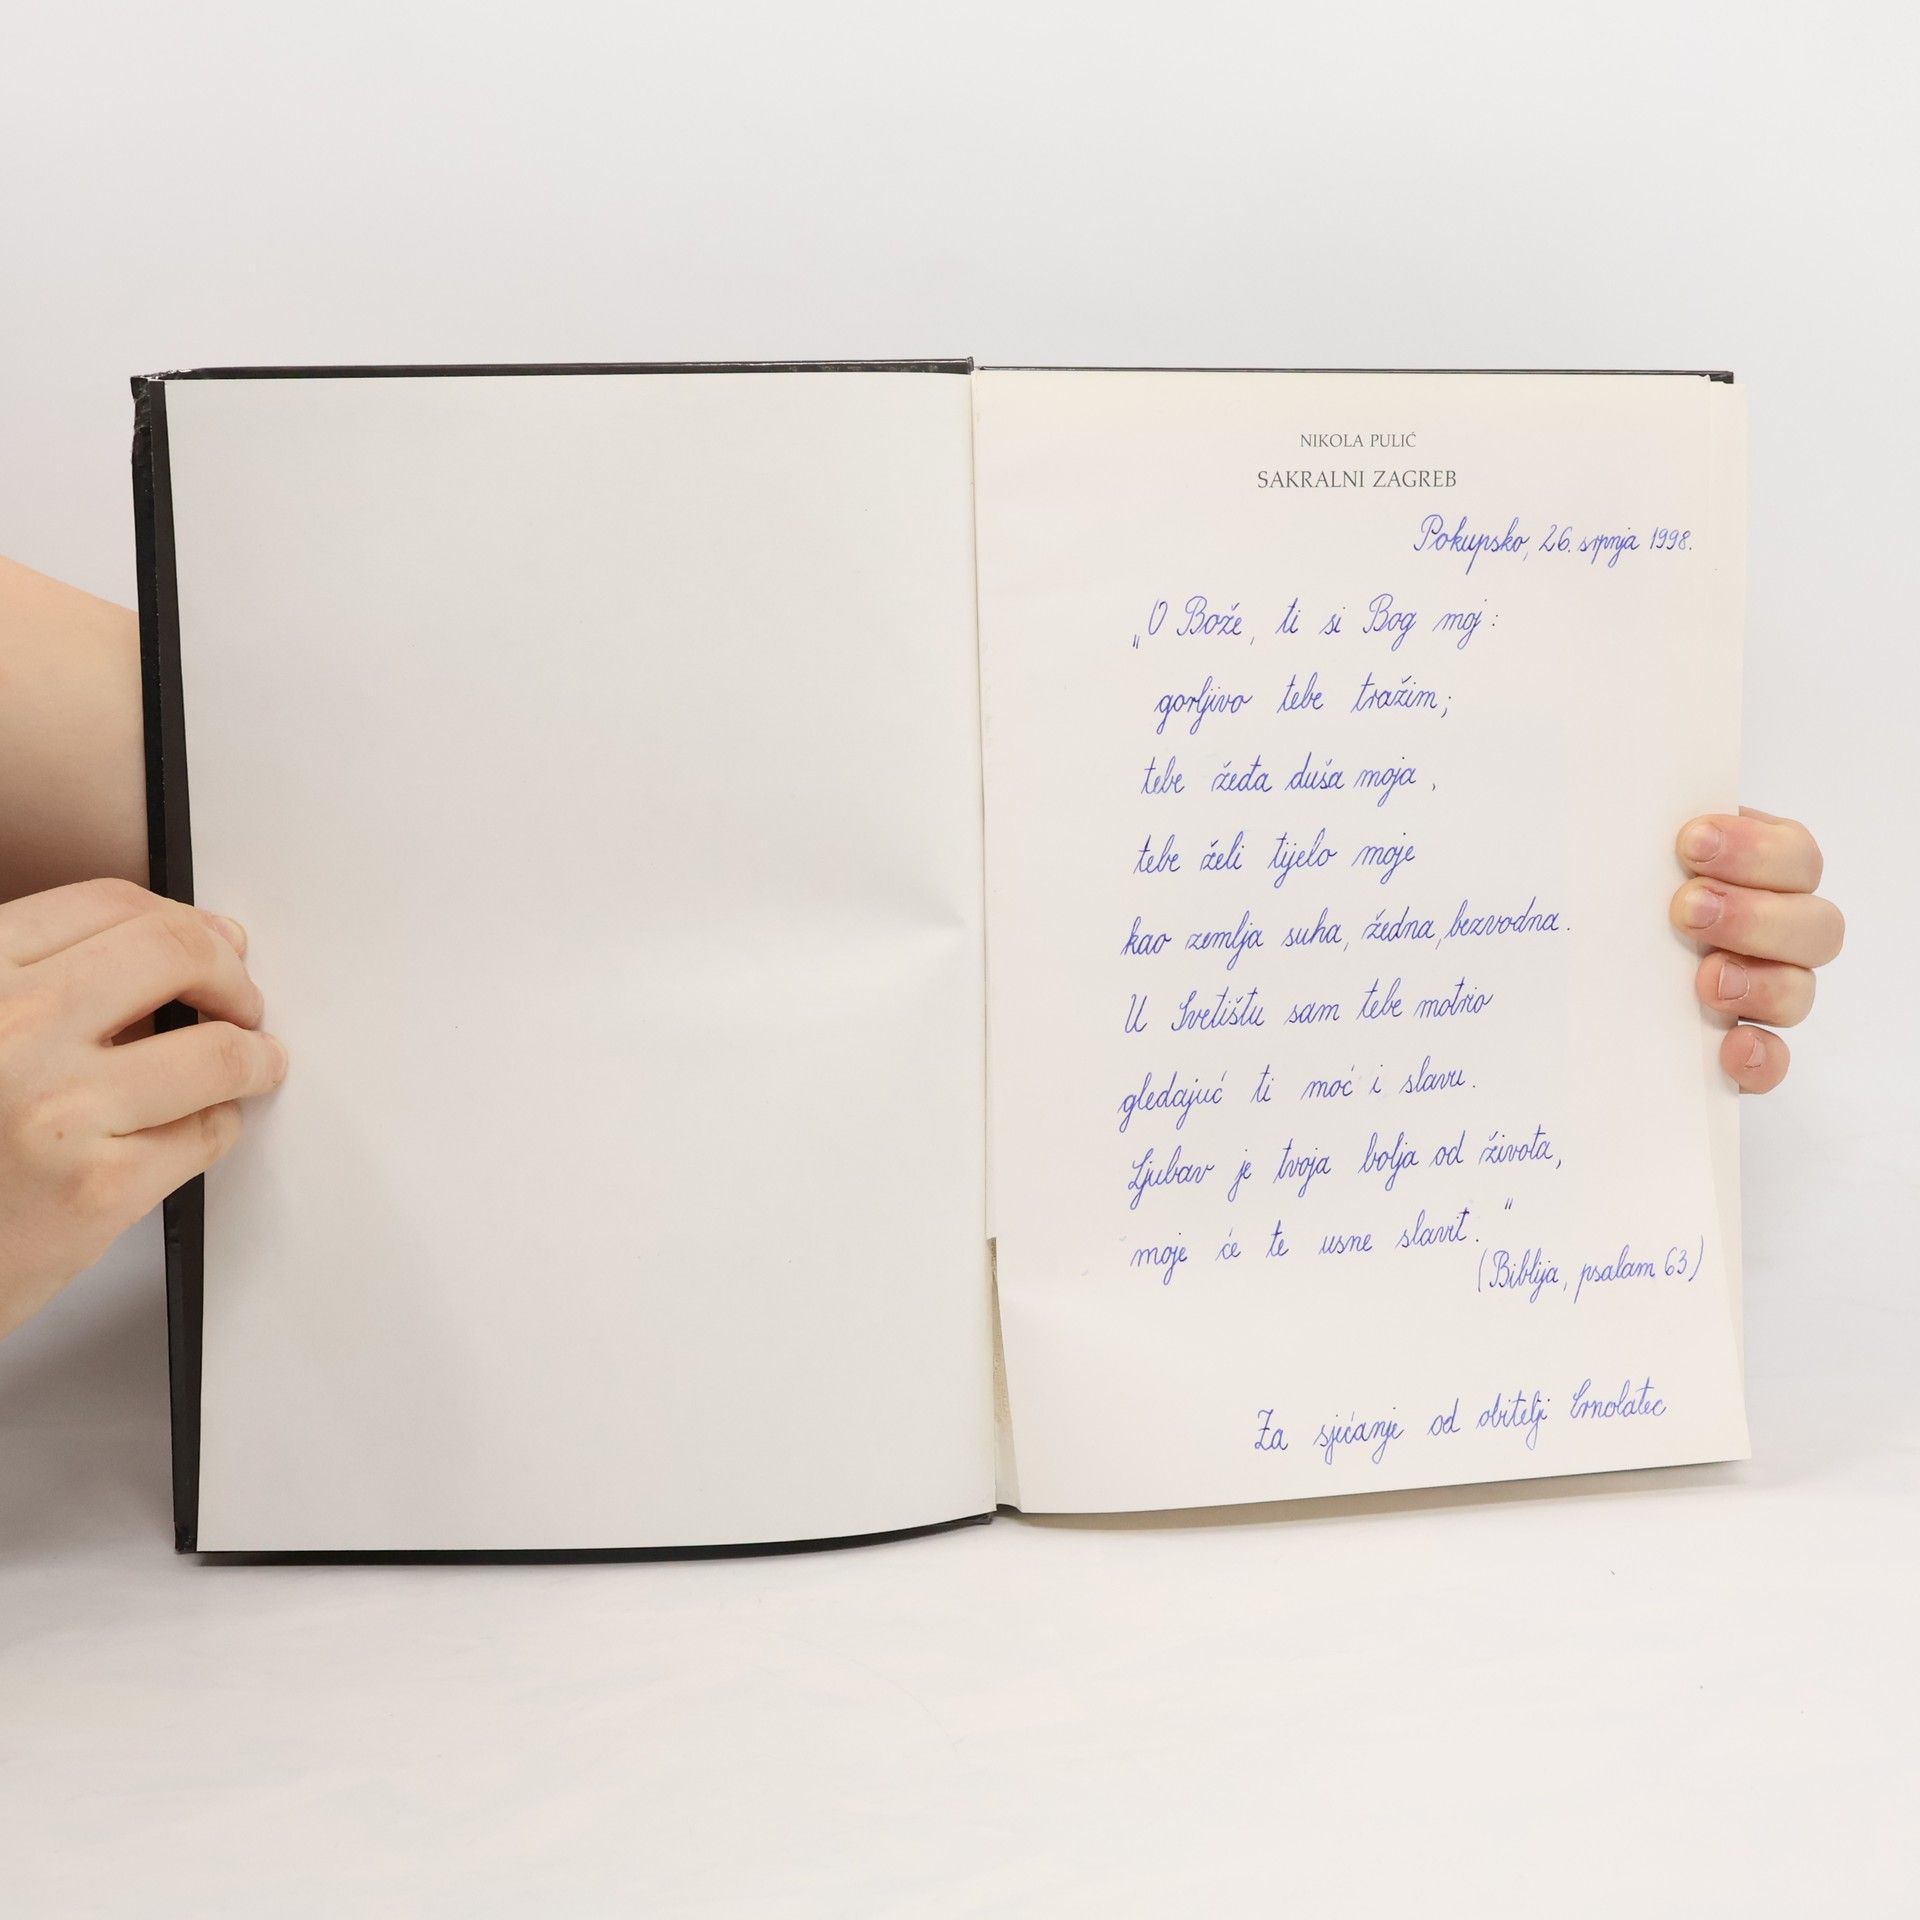 NIKOLA PULIĆ
SAKRALNI ZAGREB
Pokupsko, 26. srpnja 1998.
„O Bože, ti si Bog moj:
gorljivo tebe tražim;
tebe žeđa duša moja,
tebe želi tijelo moje
kao zemlja suha, žedna, bezvodna.
U Svetištu sam tebe motrio
gledajuć ti moć i slavu.
Ljubav je tvoja bolja od života,
moje će te usne slavit."
(Biblija, psalam 63)
Za sjećanje od obitelji Crnolatec